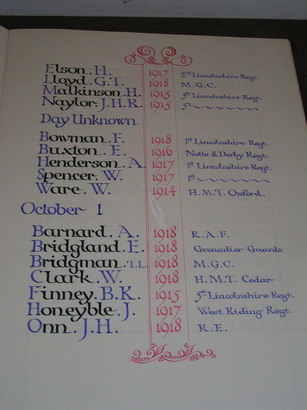 Elson. H. 1917 2nd Lincolnshire Regt.
Lloyd. G.T. 1918 M.G.C.
Malkinson. H. 1915 5th Lincolnshire Regt.
Naylor. J.H.R. 1915 5th
Day Unknown
Bowman. F. 1918 1st Lincolnshire Regt.
Buxton. E. 1916 Notts & Derby Regt.
Henderson. A. 1917 1st Lincolnshire Regt.
Spencer. W. 1917 1st
Ware. W. 1914 H.M.T. Oxford.
October 1
Barnard. A. 1918 R.A.F.
Bridgland. E. 1918 Grenadier Guards.
Bridgman. 1918 M.G.C.
Clark. W. 1918 H.M.T. Cedar
Finney. B.K. 1915 5th Lincolnshire Regt.
Honeyble. J. 1917 West Riding Regt.
Onn. J.H. 1918 R.E.